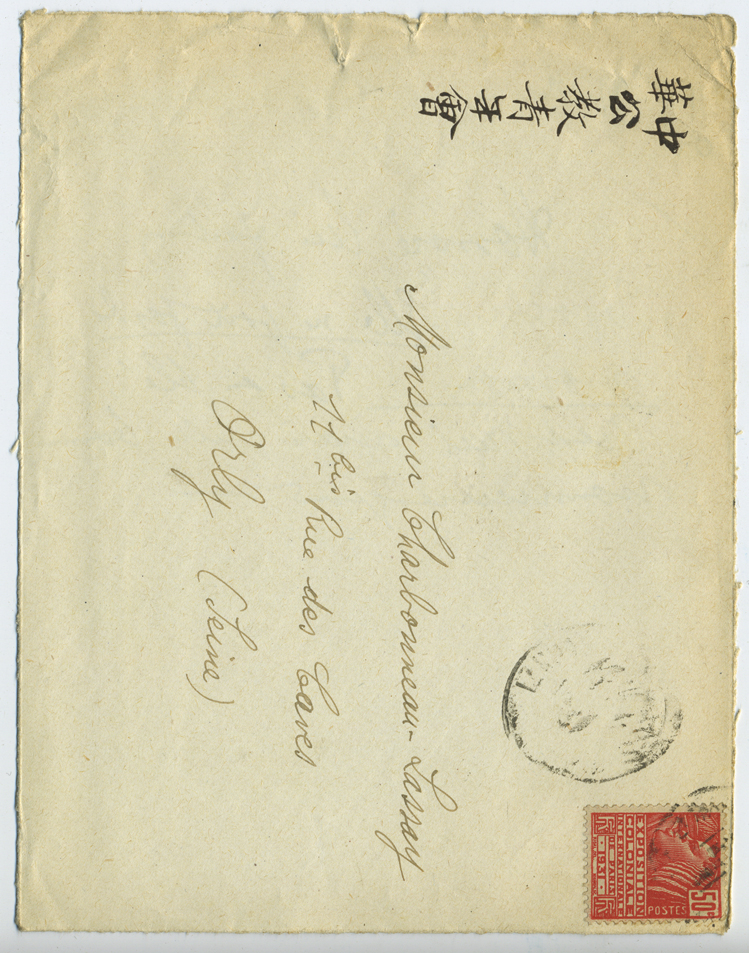 中華
公教青年會
Monsieur Charbonneau-Lassay
11 bis Rue des Caves
Orly (Seine)
50c
POSTES
EXPOSITION
COLONIALE
INTERNATIONALE
PARIS
1931